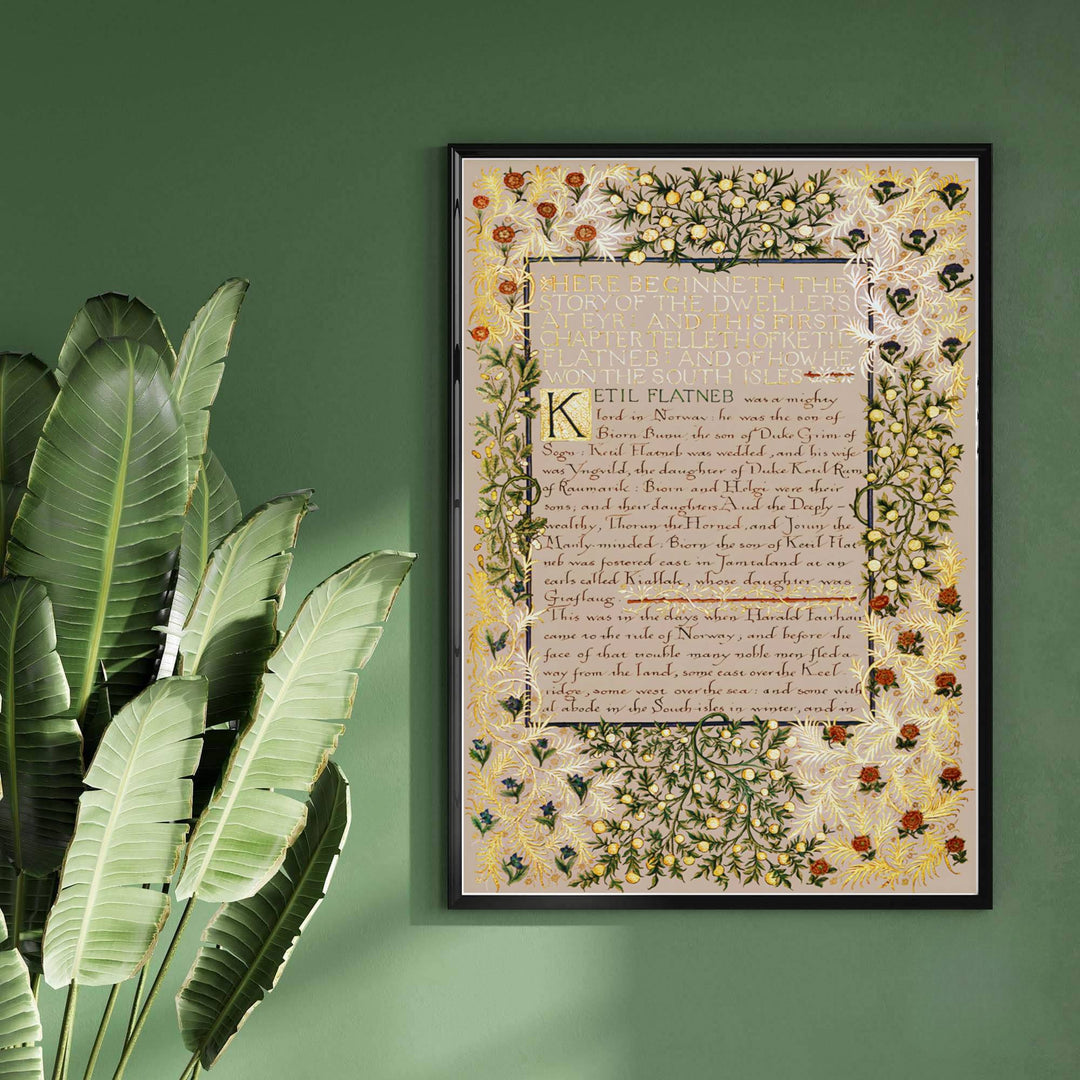 HERE BEGINNETH THE
STORY OF THE DWELLERS
AT EYR: AND THIS FIRST
CHAPTER TELLETH OF KETIL
FLATNEB: AND OF HOW HE
WON THE SOUTH ISLES
KETIL FLATNEB was a mighty
lord in Norway: he was the son of
Biorn Bunu, the son of Duke Grim of
Sogn: Ketil Flatneb was wedded, and his wife
was Yngvild, the daughter of Duke Ketil Rum
of Raumarik: Biorn and Helgi were their
sons; and their daughters Aud the Deeply-
wealthy, Thorun the Horned, and Jorun the
Manly-minded: Biorn the son of Ketil Flat
neb was fostered east in Jamtaland at an
earls called Kiallak, whose daughter was
Giaflaug.
This was in the days when Harald Fairhair
came to the rule of Norway, and before the
face of that trouble many noble men fled a-
way from the land, some east over the Keel-
ridge, some west over the sea: and some with
al abode in the South-isles in winter, and in